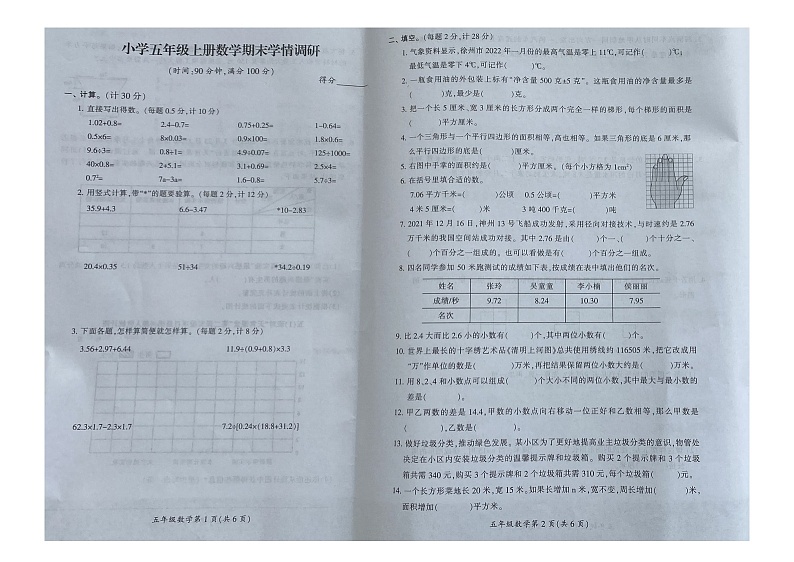 小学五年级上册数学期末学情调研
(时间:90分钟,满分100分)
得分
一、计算。(计30分)
1. 直接写出得数。(每题0.5分,计10分)
1.02+0.8= 2.4-0.7= 0.75+0.25= 1-0.64=
0.5×6= 8×0.03= 0.9×100= 1.8×0.6=
9.6÷3= 0.8+1= 4.9+0.07= 125+1000=
40×0.8= 2+5.1= 3.1+0.69= 2.5×4=
0.7²= 7a-3a= 1.6-0.8= 5.7÷3=
2. 用竖式计算,带“*”的题要验算。(每题2分,计12分)
35.9+4.3 6.6-3.47 *10-2.83
20.4×0.35 51÷34 *34.2÷0.19
3. 下面各题,怎样算简便就怎样算。(每题2分,计8分)
3.56+2.97+6.44 11.9÷(0.9+0.8)×3.3
62.3×1.7-2.3×1.7 7.2÷[0.24×(18.8+31.2)]
五年级数学第1页(共6页)
二、填空。(每题2分,计28分)
1. 气象资料显示,徐州市2022年一月份的最高气温是零上11℃,可记作( )℃;
最低气温是零下4℃,可记作( )℃。
2. 一瓶食用油的外包装上标有“净含量500克±5克”。这瓶食用油的净含量最多是
( )克,最少是( )克。
3. 把一个长5厘米,宽3厘米的长方形分成两个完全一样的梯形,每个梯形的面积是
( )平方厘米。
4. 一个三角形与一个平行四边形的面积相等,高也相等。如果三角形的底是6厘米,那
么平行四边形的底是( )厘米。
5. 右图中手掌的面积约是( )平方厘米。(每个小方格为1cm²)
6. 在括号里填合适的数。
7.06平方千米=( )公顷 0.5公顷=( )平方米
4米5厘米=( )米 3吨400千克=( )吨
7. 2021年12月16日,神州13号飞船成功发射,采用径向对接技术,与时速约是2.76
万千米的我国空间站成功对接。其中2.76是由( )个一、( )个十分之一、
( )个百分之一组成的。也可以看做是有( )个百分之一组成。
8. 四名同学参加50米跑测试的成绩如下表,按成绩在表中填出他们的名次。
姓名 张玲 吴童童 李小楠 侯丽丽
成绩/秒 9.72 8.24 10.30 7.95
名次
9. 比2.4大而比2.6小的小数有( )个,其中两位小数有( )个。
10. 世界上最长的十字绣艺术品《清明上河图》总共使用绣线约116505米,把它改成用
“万”作单位的数是( )万米,再把结果保留两位小数大约是( )万米。
11. 用8、2、4和小数点可以组成( )个大小不同的两位小数,其中最大与最小数的
差是( )。
12. 甲乙两数的差是14.4,甲数的小数点向右移动一位正好和乙数相等,那么甲数是
( ),乙数是( )。
13. 做好垃圾分类,推动绿色发展。某小区为了更好地提高业主垃圾分类的意识,物管处
决定在小区内安装垃圾分类的温馨提示牌和垃圾箱。购买2个提示牌和3个垃圾
箱共需340元,购买3个提示牌和2个垃圾箱共需310元,每个垃圾箱( )元。
14. 一个长方形菜地长20米,宽15米。如果长增加n米,宽不变,周长增加( )米,
面积增加( )平方米。
五年级数学第2页(共6页)